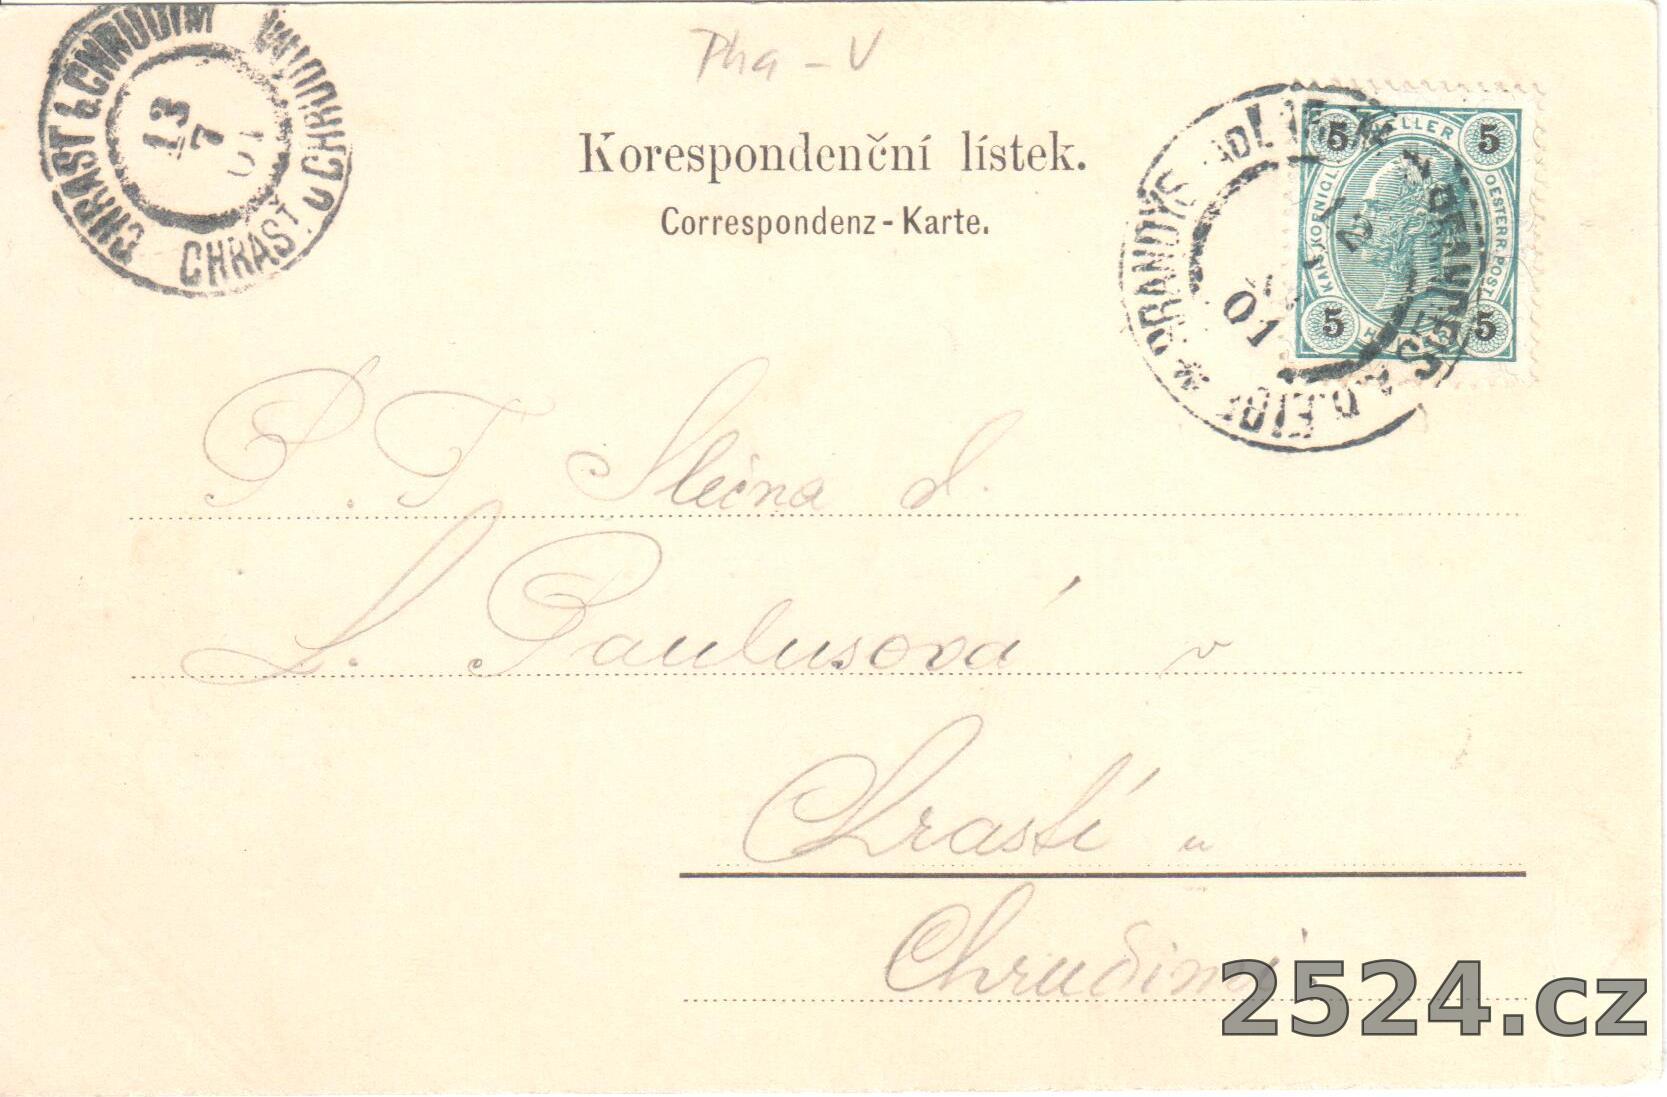 Pha - V
Korespondenční lístek.
Correspondenz-Karte.
CHRAST b. CHRUDIM
CHRAST u CHRUDIM
13
7
01
5 HELLER 5
KAIS. KOENIGL. OESTERR. POST
5 5
BRANDÝS
01
P. T. Slečna d.
L. Paulusová v
Chrasti u
Chrudimi
2524.cz